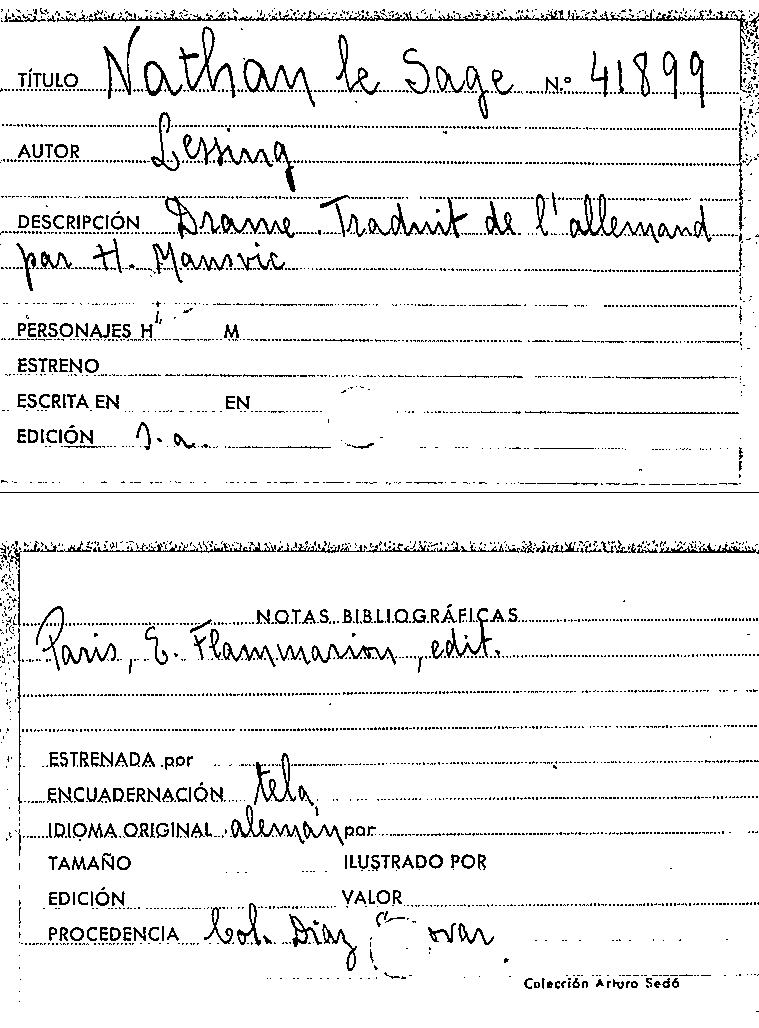 TÍTULO Nathan le Sage N.º 41899
AUTOR Lessing
DESCRIPCIÓN Drame. Traduit de l'allemand
par H. Mansvic
PERSONAJES H M
ESTRENO
ESCRITA EN EN
EDICIÓN s.a.
NOTAS BIBLIOGRÁFICAS
Paris, E. Flammarion, edit.
ESTRENADA por
ENCUADERNACIÓN tela
IDIOMA ORIGINAL alemán por
TAMAÑO ILUSTRADO POR
EDICIÓN VALOR
PROCEDENCIA Col. Díaz
Colección Arturo Sedó